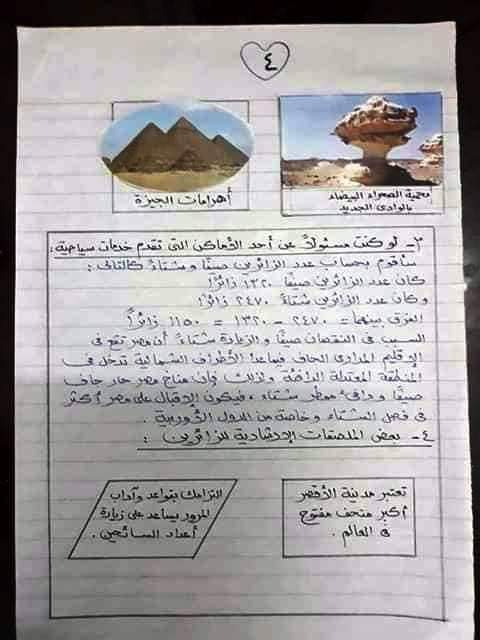 ٤
محمية الصحراء البيضاء
بالوادى الجديد
أهرامات الجيزة
٣- لو كنت مسئولاً عن أحد الأماكن التى تقدم خدمات سياحية:
سأقوم بحساب عدد الزائرين صيفًا وشتاءً كالتالى:
كان عدد الزائرين صيفًا ١٣٢٠ زائرًا
وكان عدد الزائرين شتاءً ٢٤٧٠ زائرًا
الفرق بينهما = ٢٤٧٠ - ١٣٢٠ = ١١٥٠ زائرًا
السبب فى النقصان صيفًا والزيادة شتاءً أن مصر تقع فى
الإقليم المدارى الجاف فيما عدا الأطراف الشمالية تدخل فى
المنطقة المعتدلة الدافئة ولذلك فإن مناخ مصر حار جاف
صيفًا ودافئ ممطر شتاء، فيكون الإقبال على مصر أكثر
فى فصل الشتاء وخاصة من الدول الأوربية.
٤- بعض الملصقات الإرشادية للزائرين:
تعتبر مدينة الأقصر
أكبر متحف مفتوح
فى العالم.
التزامك بقواعد وآداب
المرور يساعد على زيادة
أعداد السائحين.